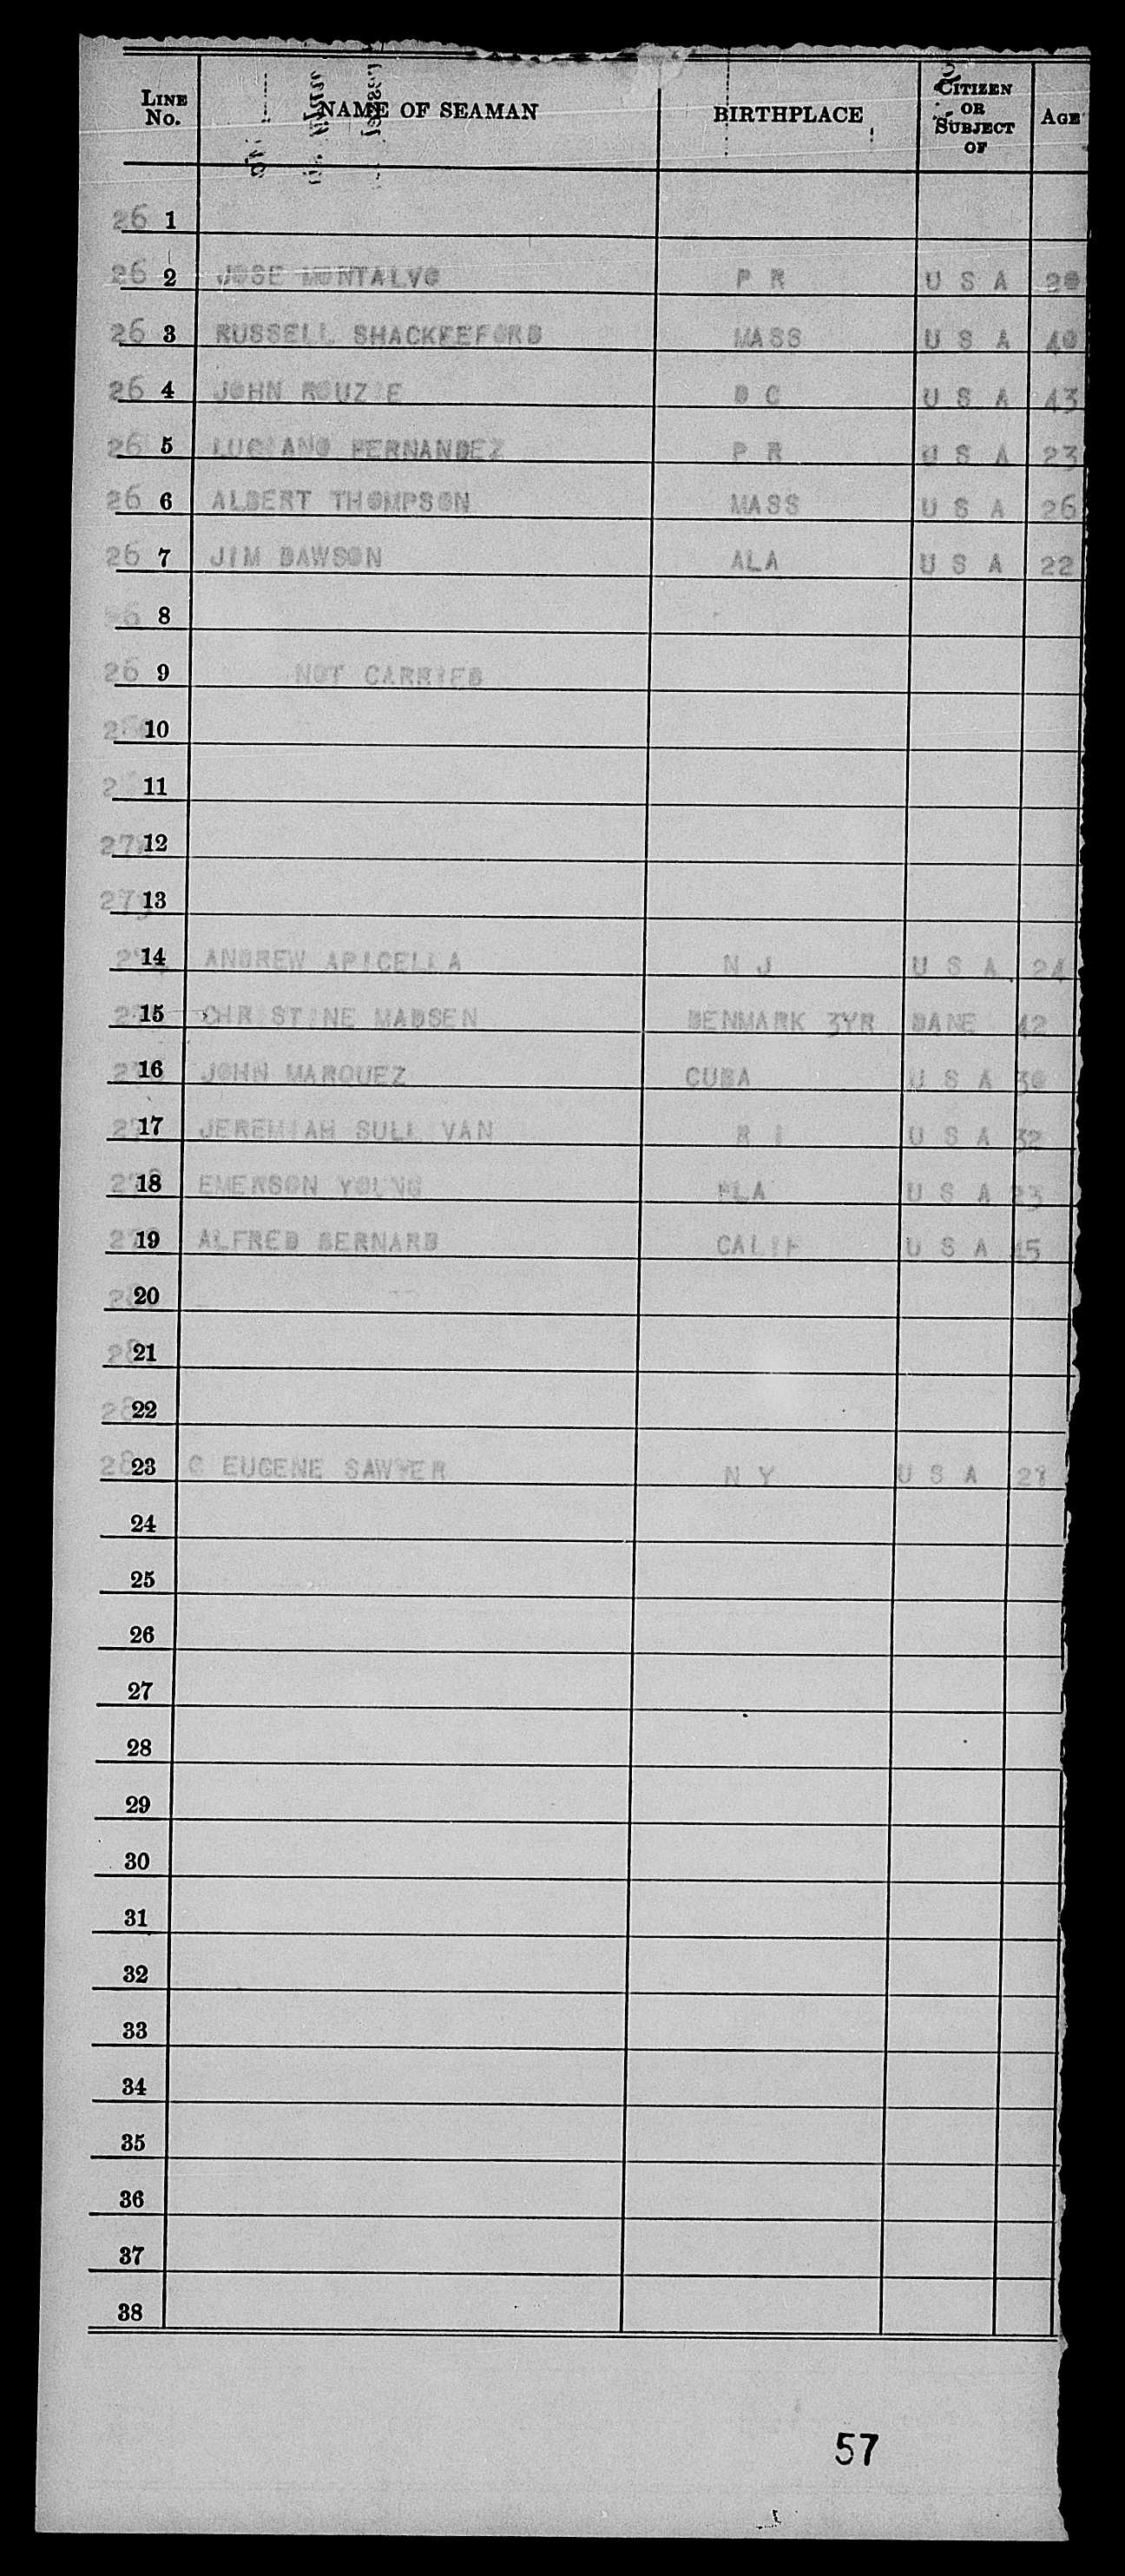 LINE No. NAME OF SEAMAN BIRTHPLACE CITIZEN OR SUBJECT OF AGE
26 1
26 2 JOSE MONTALVO P R U S A 20
26 3 RUSSELL SHACKEEFORD MASS U S A 40
26 4 JOHN ROUZIE D C U S A 43
26 5 LUCIANO FERNANDEZ P R U S A 23
26 6 ALBERT THOMPSON MASS U S A 26
26 7 JIM DAWSON ALA U S A 22
26 8
26 9 NOT CARRIED
10
11
12
13
14 ANDREW APICELLA N J U S A 24
15 CHRISTINE MADSEN DENMARK 3YR DANE 42
16 JOHN MARQUEZ CUBA U S A 30
17 JEREMIAH SULLIVAN R I U S A 32
18 EMERSON YOUNG FLA U S A 23
19 ALFRED BERNARD CALIF U S A 45
20
21
22
23 G EUGENE SAWYER N Y U S A
24
25
26
27
28
29
30
31
32
33
34
35
36
37
38
57